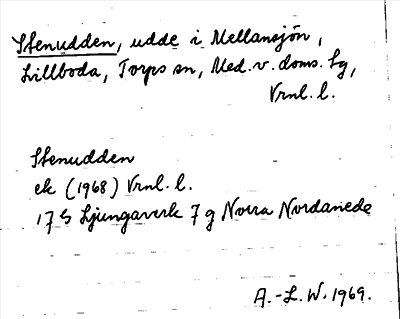 Stenudden, udde i Mellansjön,
Lillboda, Torps sn, Med. v. doms. tg,
Vrnl. l.
Stenudden
ek (1968) Vrnl. l.
17 G Ljungaverk 7 g Norra Nordanede
A.-L. W. 1969.